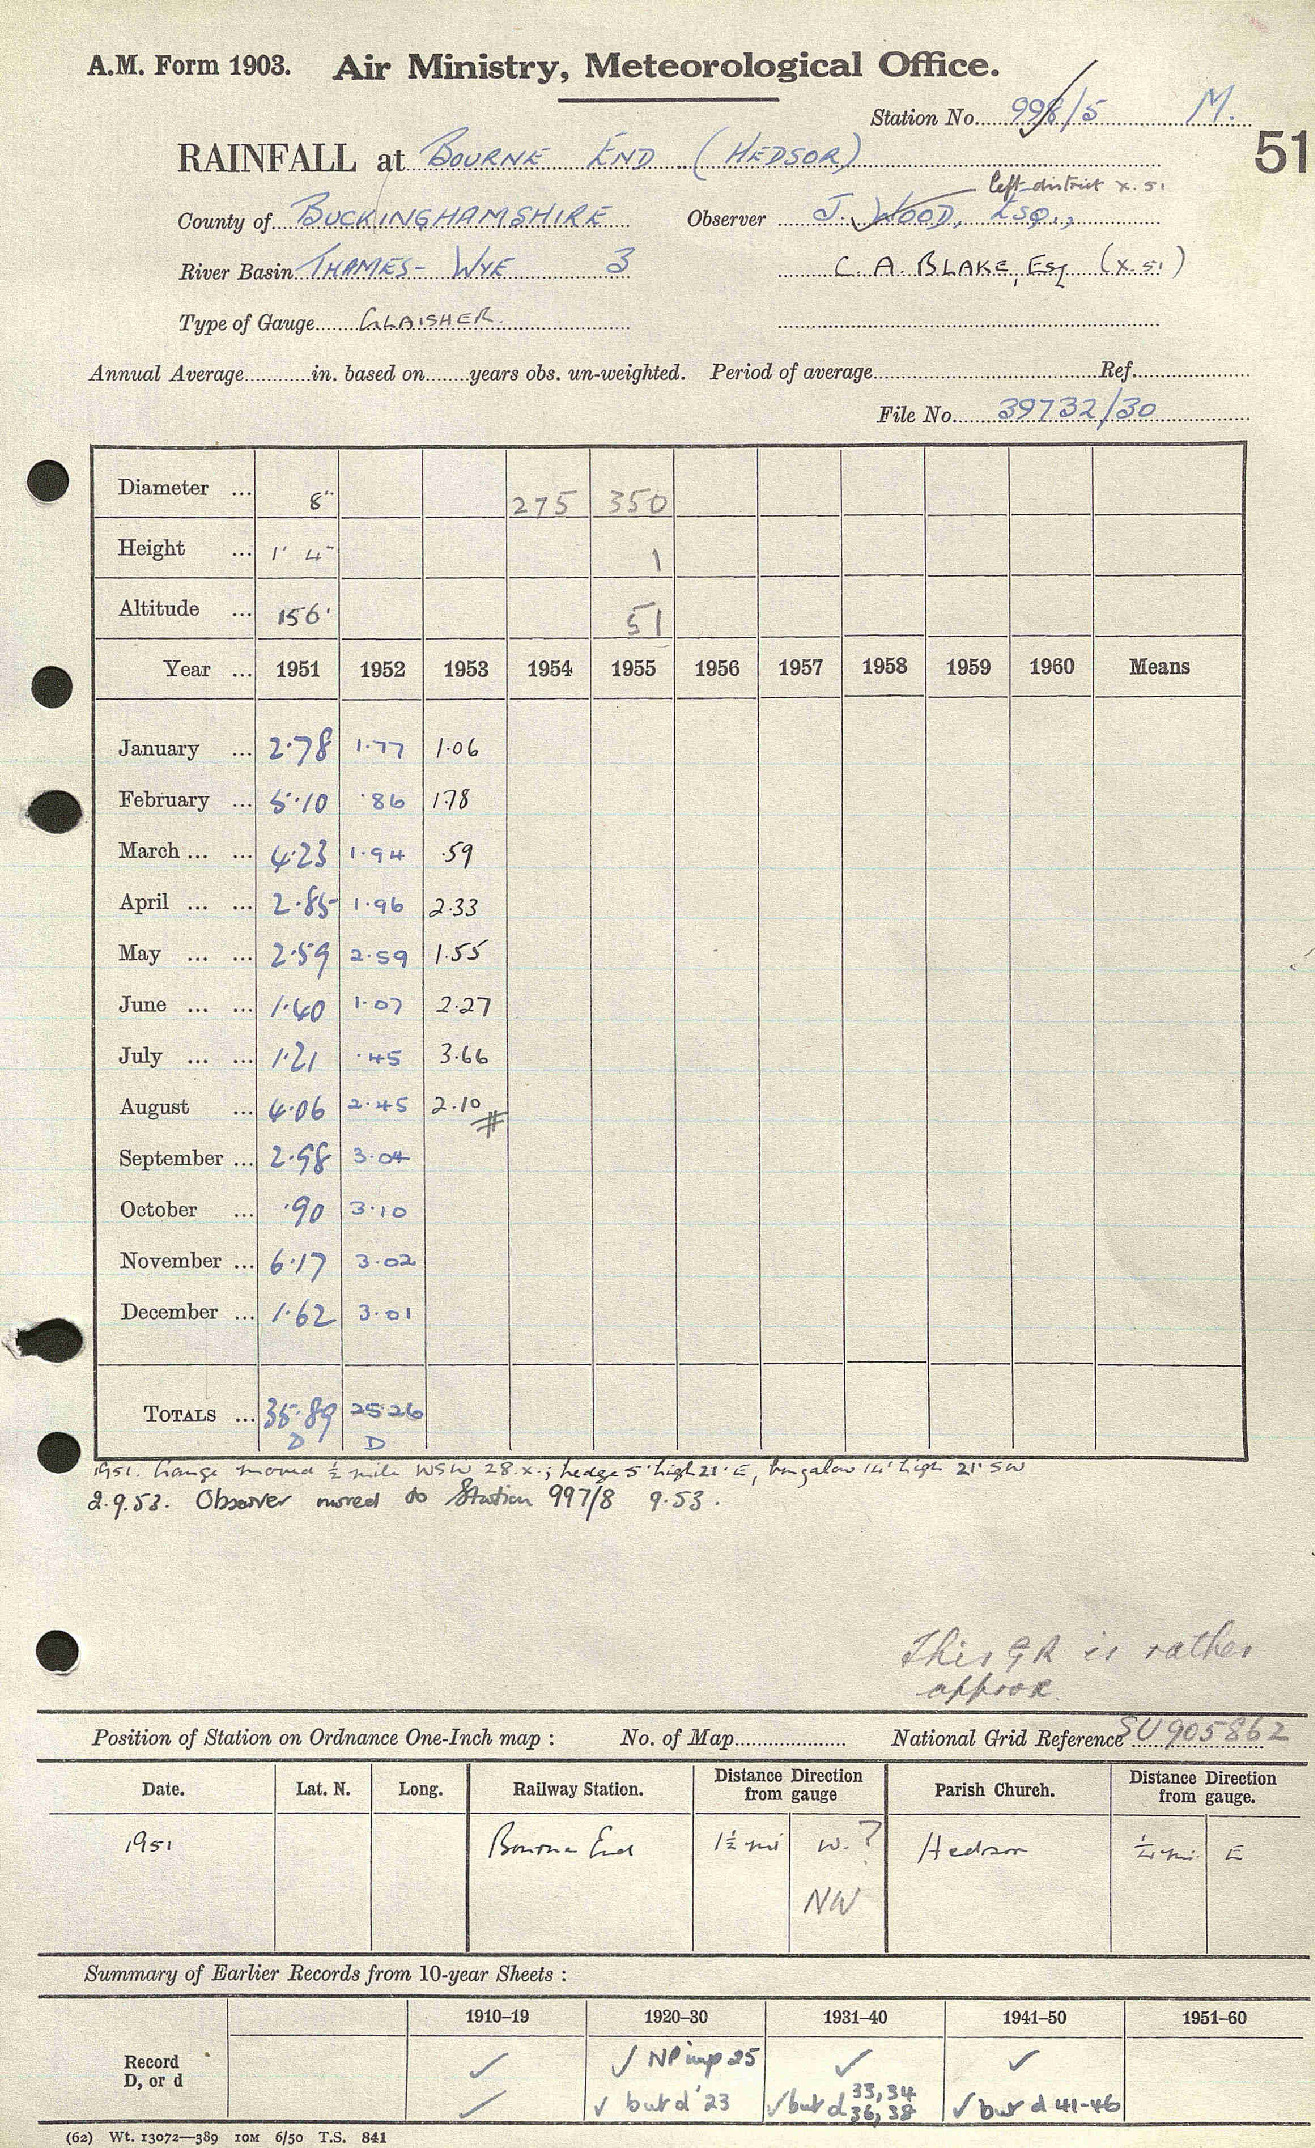 A.M. Form 1903. Air Ministry, Meteorological Office.
Station No. 998/5 M.
51
RAINFALL at BOURNE END (HEDSOR)
left district x.51
County of BUCKINGHAMSHIRE Observer J. WOOD, ESQ.,
River Basin THAMES - WYE 3 C. A. BLAKE, Esq (x.51)
Type of Gauge GLAISHER
Annual Average in. based on years obs. un-weighted. Period of average Ref.
File No. 39732/30
Diameter ... 8" 275 350
Height ... 1' 4" 1
Altitude ... 156' 51
Year ... 1951 1952 1953 1954 1955 1956 1957 1958 1959 1960 Means
January ... 2.78 1.77 1.06
February ... 5.10 .86 1.78
March ... ... 4.23 1.94 .59
April ... ... 2.85 1.96 2.33
May ... ... 2.59 2.59 1.55
June ... ... 1.40 1.07 2.27
July ... ... 1.21 .45 3.66
August ... 4.06 2.45 2.10
September ... 2.98 3.04
October ... .90 3.10
November ... 6.17 3.02
December ... 1.62 3.01
TOTALS ... 35.89 25.26
D D
1951. Gauge moved ½ mile WSW 28.x.; hedge 5' high 21' E, bungalow 14' high 21' SW
2.9.53. Observer moved to Station 997/8 9.53.
This GR is rather
approx.
Position of Station on Ordnance One-Inch map : No. of Map National Grid Reference SU 905862
Date. Lat. N. Long. Railway Station. Distance Direction from gauge Parish Church. Distance Direction from gauge.
1951 Bourne End 1½ mi W. ? Hedsor ¼ mi E
NW
Summary of Earlier Records from 10-year Sheets :
1910-19 1920-30 1931-40 1941-50 1951-60
Record ✓ ✓ NP imp 25 ✓ ✓
D, or d ✓ ✓ but d '23 ✓ but d 33, 34 36, 38 ✓ but d 41-46
(62) Wt. 13072—389 10M 6/50 T.S. 841